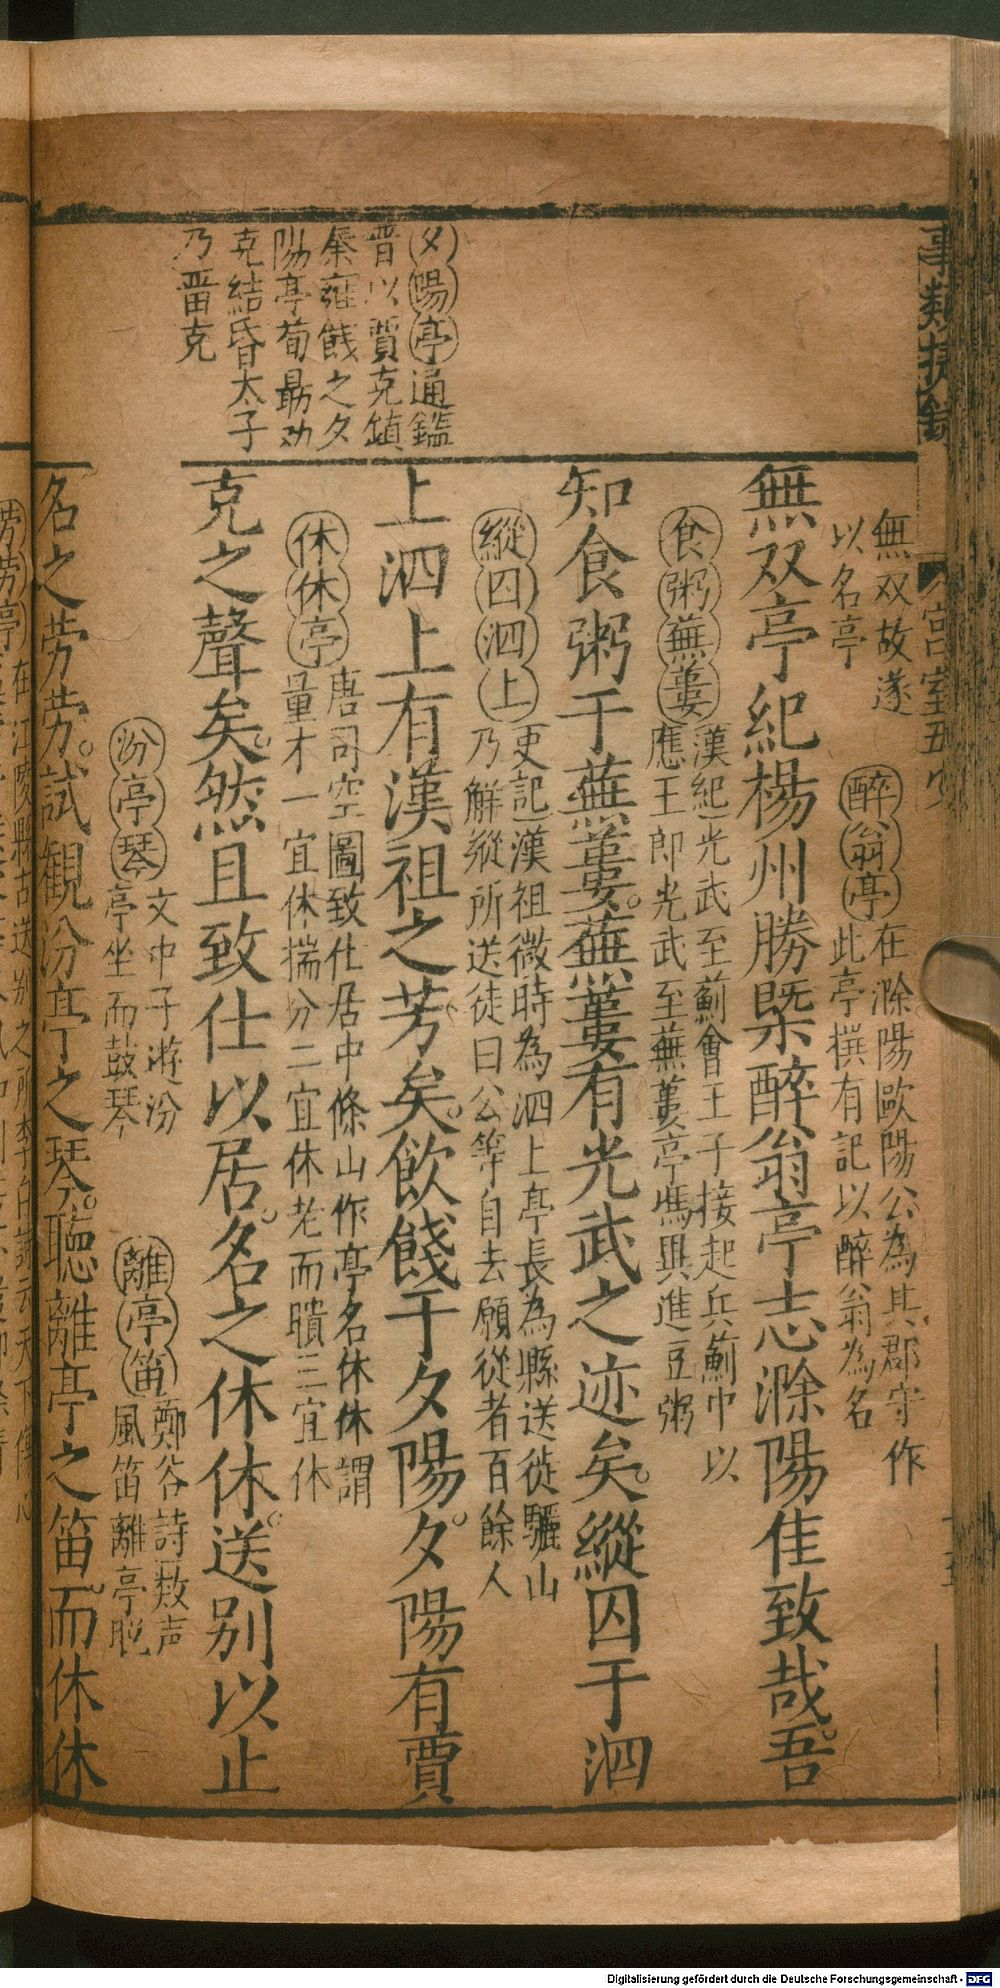 事類捷錄
宮室五
無双故遂
以名亭
醉翁亭
在滁陽歐陽公為其郡守作
此亭撰有記以醉翁為名
無双亭紀楊州勝槩醉翁亭志滁陽佳致哉吾
食粥蕪蔞
漢紀光武至薊會王子接起兵薊中以
應王郎光武至蕪蔞亭馮異進豆粥
知食粥于蕪蔞蕪蔞有光武之迹矣縱囚于泗
縱囚泗上
吏記漢祖微時為泗上亭長為縣送徒驪山
乃觧縱所送徒曰公等自去願從者百餘人
夕陽亭通鑑
晋以賈充鎮
秦雍餞之夕
陽亭荀勗劝
充結昏太子
乃畱充
上泗上有漢祖之芳矣飲餞于夕陽夕陽有賈
休休亭
唐司空圖致仕居中條山作亭名休休謂
量才一宜休揣分二宜休老而聵三宜休
充之聲矣然且致仕以居名之休休送别以止
汾亭琴
文中子遊汾
亭坐而鼓琴
離亭笛
鄭谷詩数声
風笛離亭脫
名之劳劳試観汾亭之琴聴離亭之笛而休休
劳劳亭
在江陵縣古送别之所李白詩云天下傷心
Digitalisierung gefördert durch die Deutsche Forschungsgemeinschaft - DFG